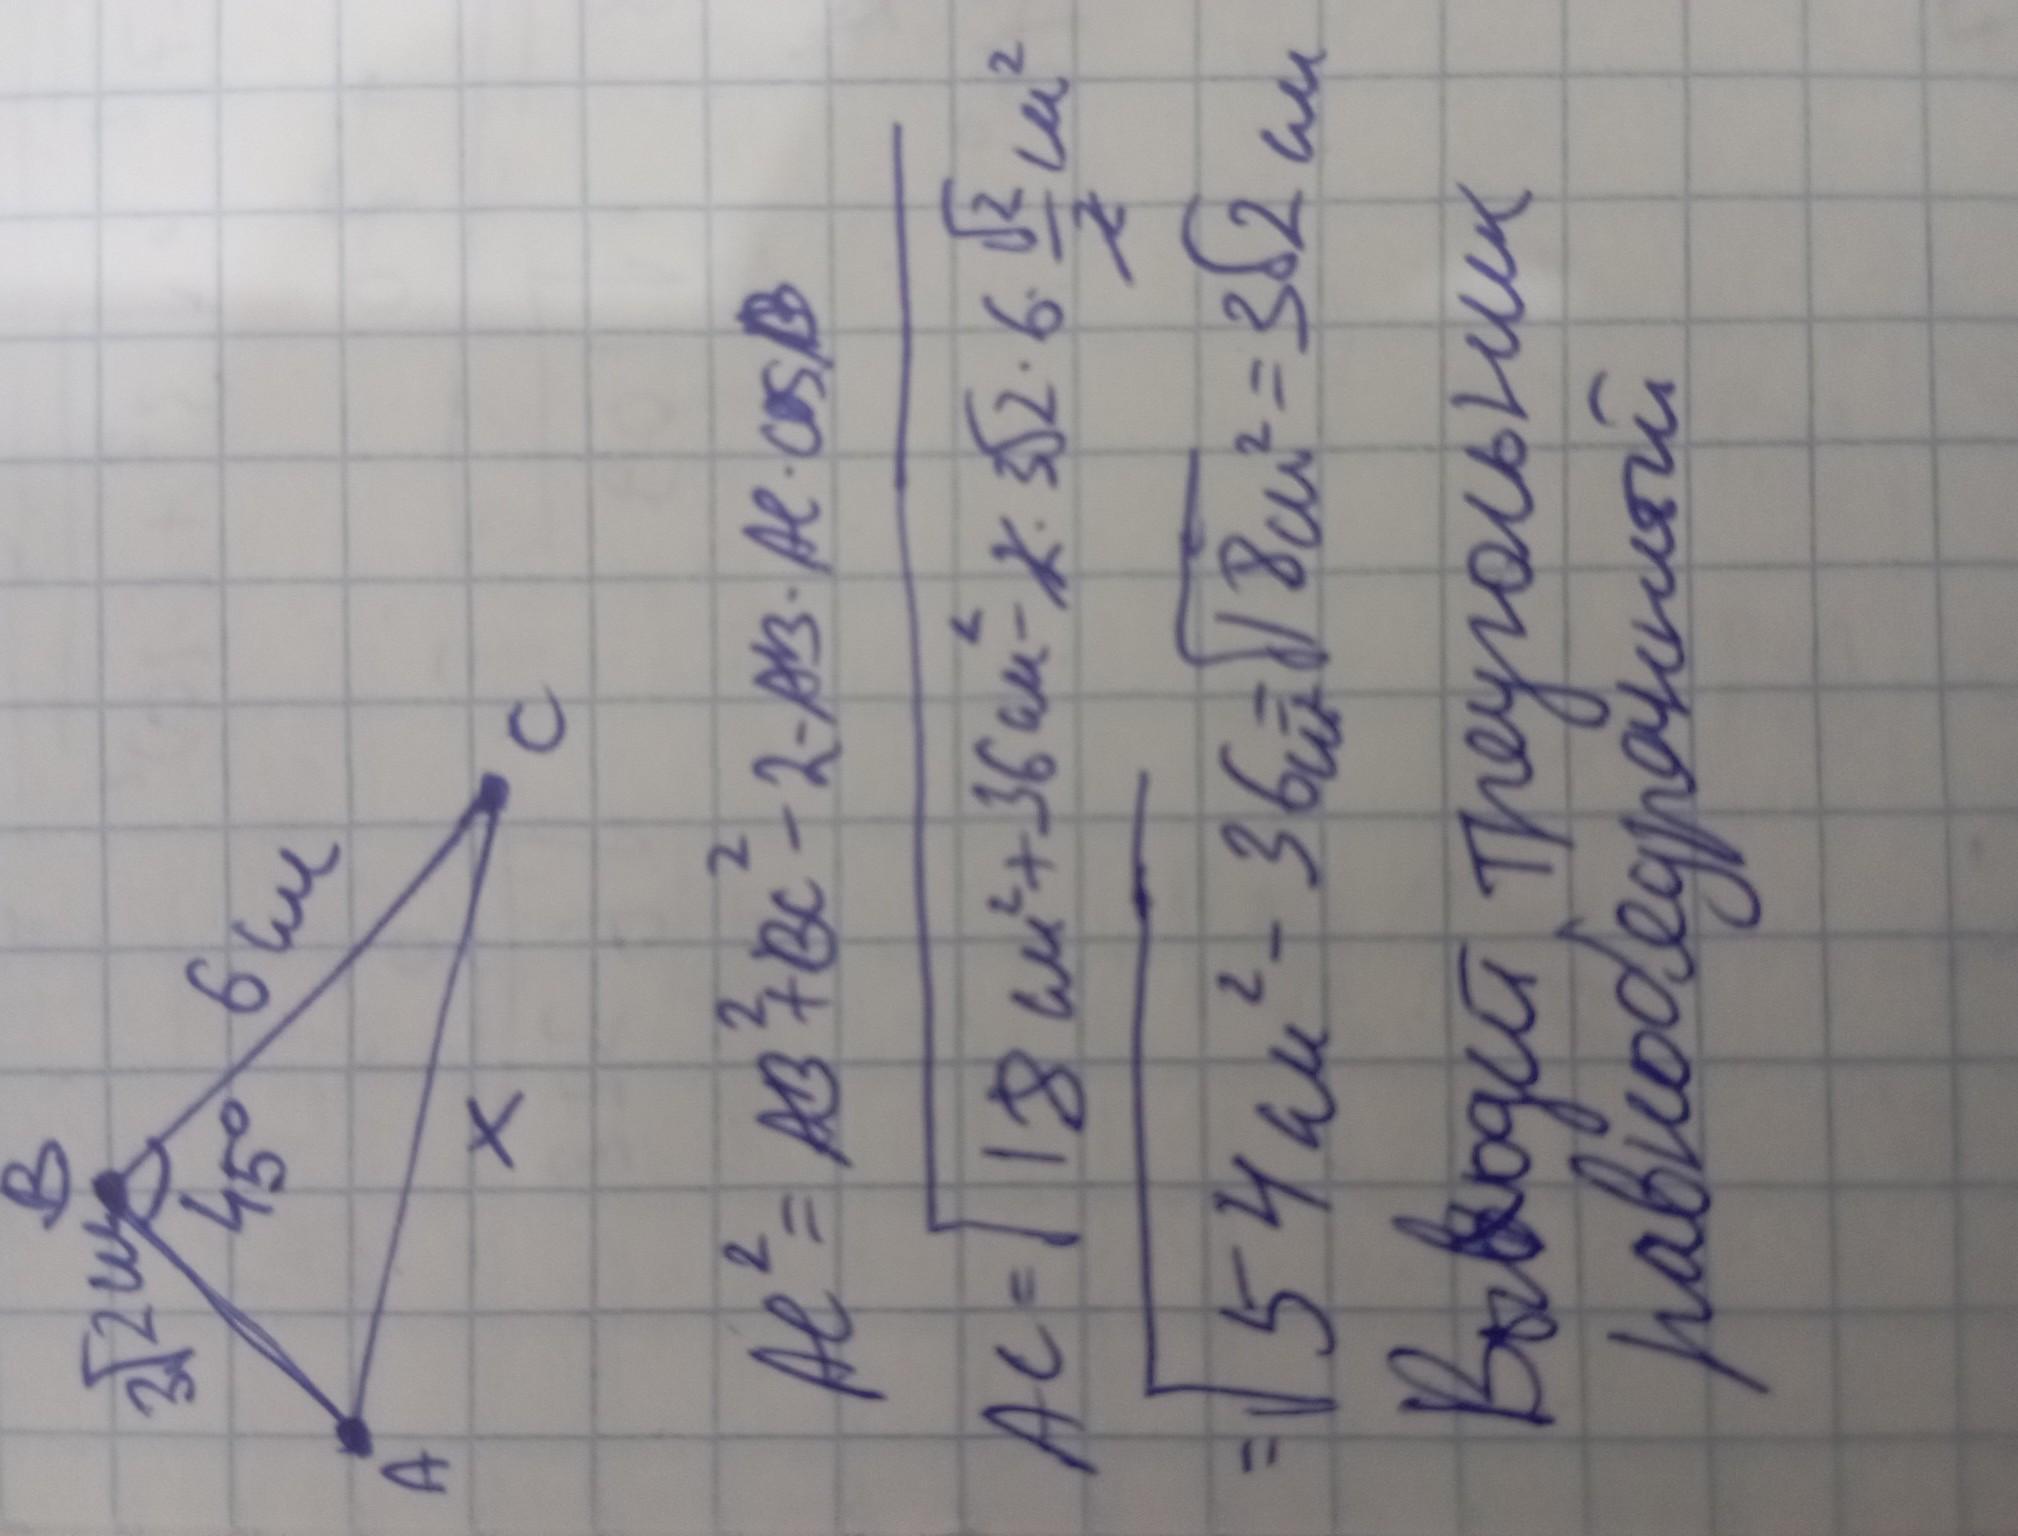 B
3√2 см
6 см
45°
A
x
C
AC² = AB² + BC² - 2 · AB · AC · cosB
AC = √18 см² + 36 см² - 2 · 3√2 · 6 · √2/2 см²
= √54 см² - 36 см² = √18 см² = 3√2 см
Выводит треугольник
равнобедрянняй